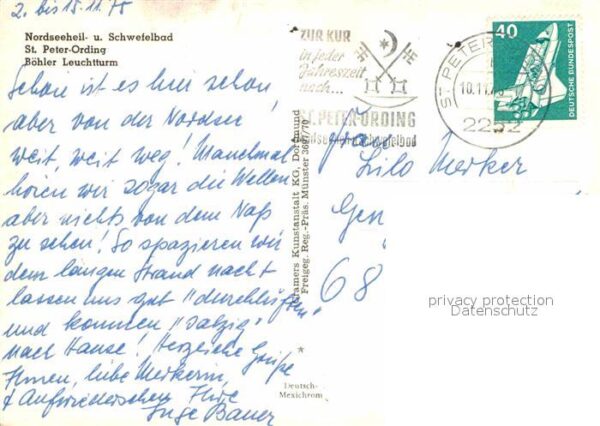 2. bis 15.11.75
Nordseeheil- u. Schwefelbad
St. Peter-Ording
Böhler Leuchtturm
Schön ist es hier schon,
aber von der Nordsee
weit, weit weg! Manchmal
hören wir sogar die Wellen
aber nichts von dem Naß
zu sehen! So spazieren wir
dem langen Strand nach
lassen uns gut "durchlüften"
und kommen "salzig"
nach Hause! Herzliche Grüße
Ihnen, liebe Merkerin,
& Aufwiedersehen Ihre
Inge Bauer
Kramers Kunstanstalt KG, Dortmund
Freigeg. Reg.-Präs. Münster 3691/70
Deutsch-
Mexichrom
ZUR KUR
in jeder
Jahreszeit
nach...
ST. PETER-ORDING
Nordseeheil- u. Schwefelbad
ST. PETER
10.11.75
2252
40
DEUTSCHE BUNDESPOST
Lilo Merker
68
privacy protection
Datenschutz